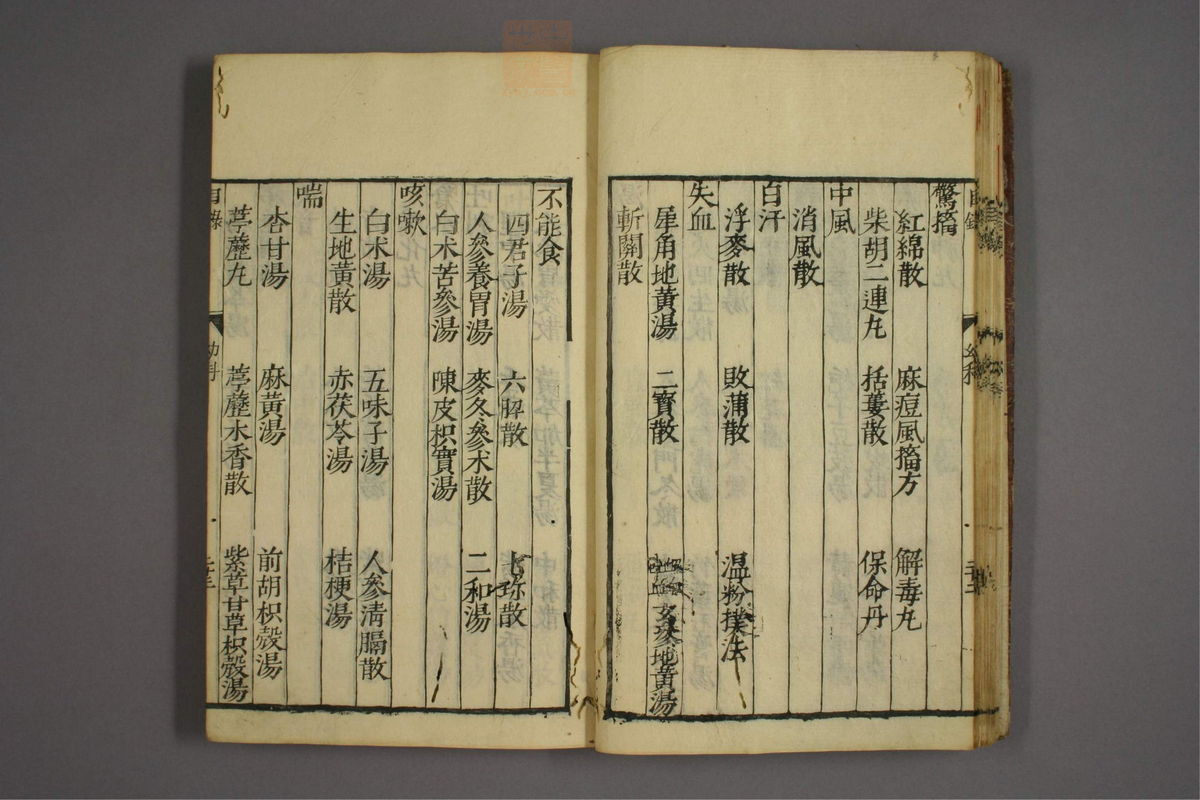 驚搐
紅綿散 麻痘風搐方 解毒丸
柴胡二連丸 括蔞散 保命丹
中風
消風散
自汗
浮麥散 敗蒲散 温粉撲法
失血
犀角地黃湯 二寳散 地黃湯
斬關散
不能食
四君子湯 六脾散 七珎散
人參養胃湯 麥冬參术散 二和湯
白术苦參湯 陳皮枳實湯
咳嗽
白术湯 五味子湯 人參淸膈散
生地黃散 赤茯苓湯 桔梗湯
喘
杏甘湯 麻黃湯 前胡枳殼湯
葶藶丸 葶藶木香散 紫草甘草枳殼湯
目錄 幼科